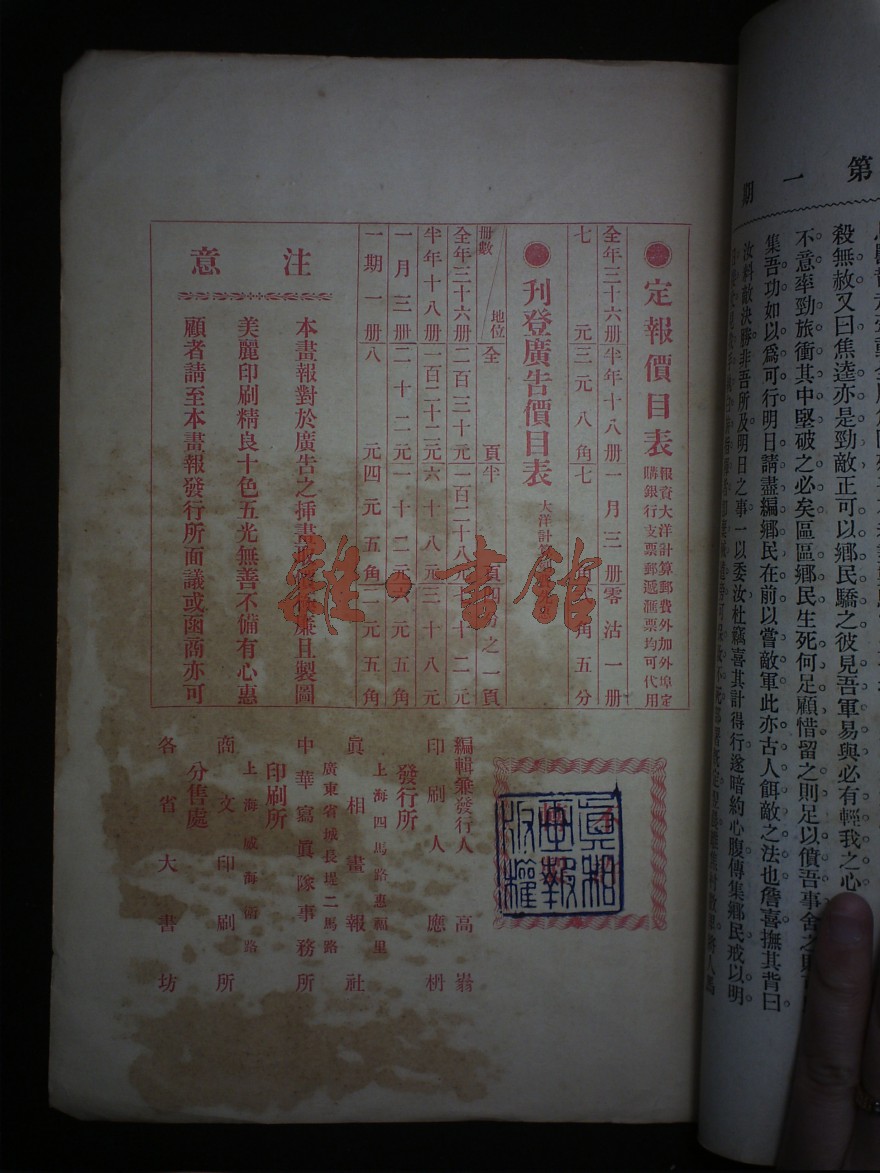 第一期
殺無赦又曰焦逵亦是勁敵正可以鄉民驕之彼見吾軍易與必有輕我之心
不意率勁旅衝其中堅破之必矣區區鄉民生死何足顧惜留之則足以僨吾事舍之則
集吾功如以爲可行明日請盡編鄉民在前以嘗敵軍此亦古人餌敵之法也詹喜撫其背曰
汝料敵決勝非吾所及明日之事一以委汝杜竊喜其計得行遂暗約心腹傳集鄉民戒以明
定報價目表
報資大洋計算郵費外加外埠定
購銀行支票郵遞滙票均可代用
全年三十六册
半年十八册
一月三册
零沽一册
七元
三元八角
七
角五分
刊登廣告價目表
大洋計
册數
地位
全頁
半頁
四
之一頁
全年三十六册
二百三十元
一百二十八元
七十二元
半年十八册
一百二十二元
六十八元
三十八元
一月三册
二十二元
一十二元
六元五角
一期一册
八元
四元五角
二元五角
注意
本畫報對於廣告之揷畫
廉且製圖
美麗印刷精良十色五光無善不備有心惠
顧者請至本畫報發行所面議或函商亦可
眞相
畫報
版權
編輯兼發行人 高嵡
印刷人 應枬
發行所
上海四馬路惠福里
眞相畫報社
廣東省城長堤二馬路
中華寫眞隊事務所
印刷所
上海威海衛路
商文印刷所
分售處
各省大書坊
雜·書館